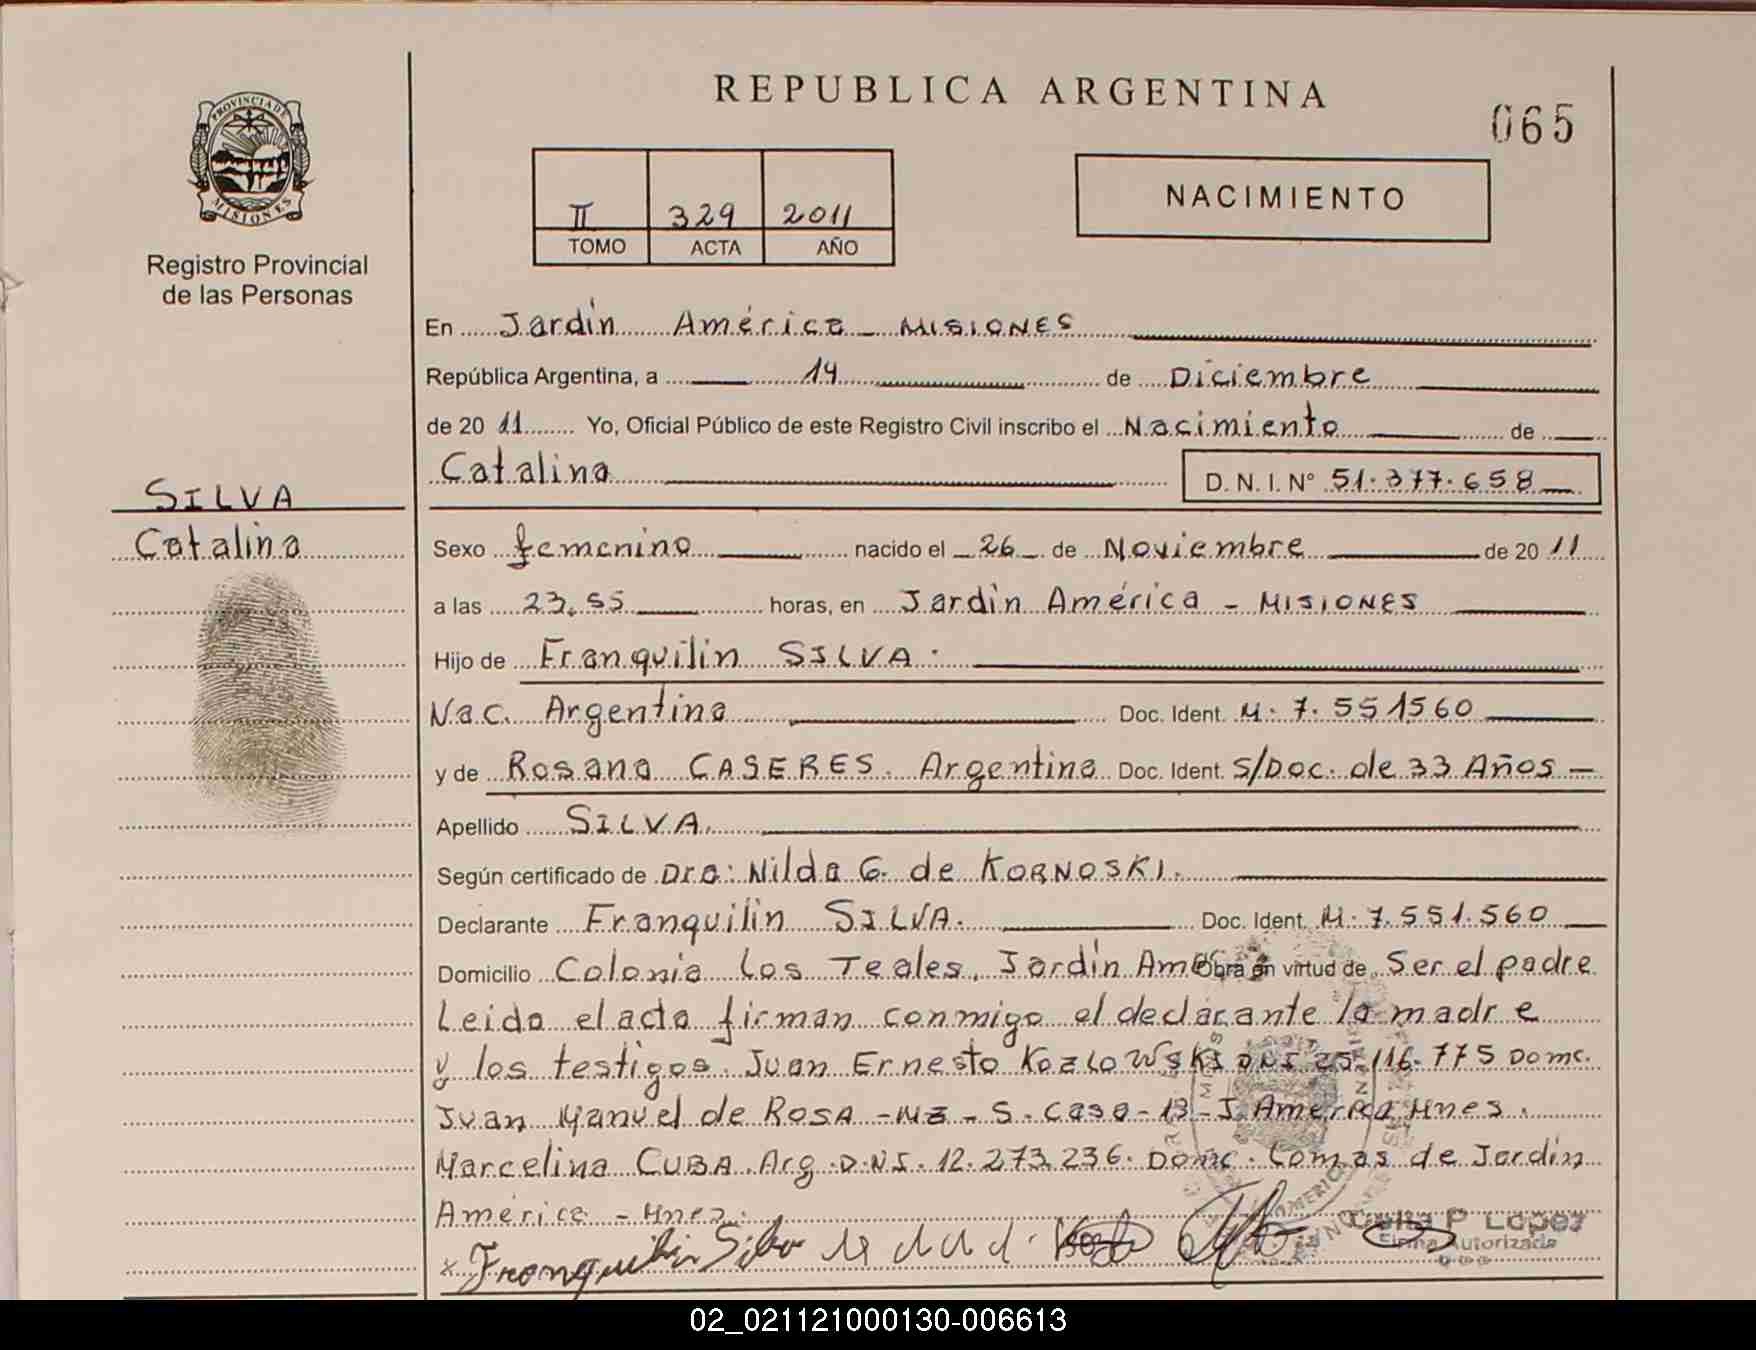 REPUBLICA ARGENTINA
065
PROVINCIA DE
MISIONES
Registro Provincial
de las Personas
II 329 2011
TOMO ACTA AÑO
NACIMIENTO
En Jardín América - MISIONES
República Argentina, a 14 de Diciembre
de 20 11 Yo, Oficial Público de este Registro Civil inscribo el Nacimiento de
Catalina D. N. I. N° 51.377.658
SILVA
Catalina
Sexo femenino nacido el 26 de Noviembre de 20 11
a las 23,55 horas, en Jardín América - MISIONES
Hijo de Franquilin SILVA.
Nac. Argentina Doc. Ident. M. 7. 551560
y de Rosana CASERES. Argentina Doc. Ident. S/Doc. de 33 Años
Apellido SILVA.
Según certificado de Dra: Nilda G. de KORNOSKI.
Declarante Franquilin SILVA. Doc. Ident. M. 7.551.560
Domicilio Colonia Los Teales, Jardín Amé Obra en virtud de Ser el padre
Leida el acta firman conmigo el declarante la madre
y los testigos. Juan Ernesto KOZLOWSKI DNI 25.116.775 Domc.
Juan Manuel de ROSA - MZ - S. Casa - 13 - J. America Mnes.
Marcelina CUBA. Arg. D.N.I. 12.273.236. Domc. Lomas de Jardín
América - Mnes.
x Franquilin Silva
Celia P Lopez
Firma Autorizada
02_021121000130-006613